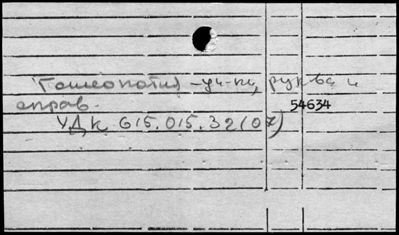 Гомеопатия - уч-ки, рук-ва и
справ.
54634
УДК 615.015.32(07)